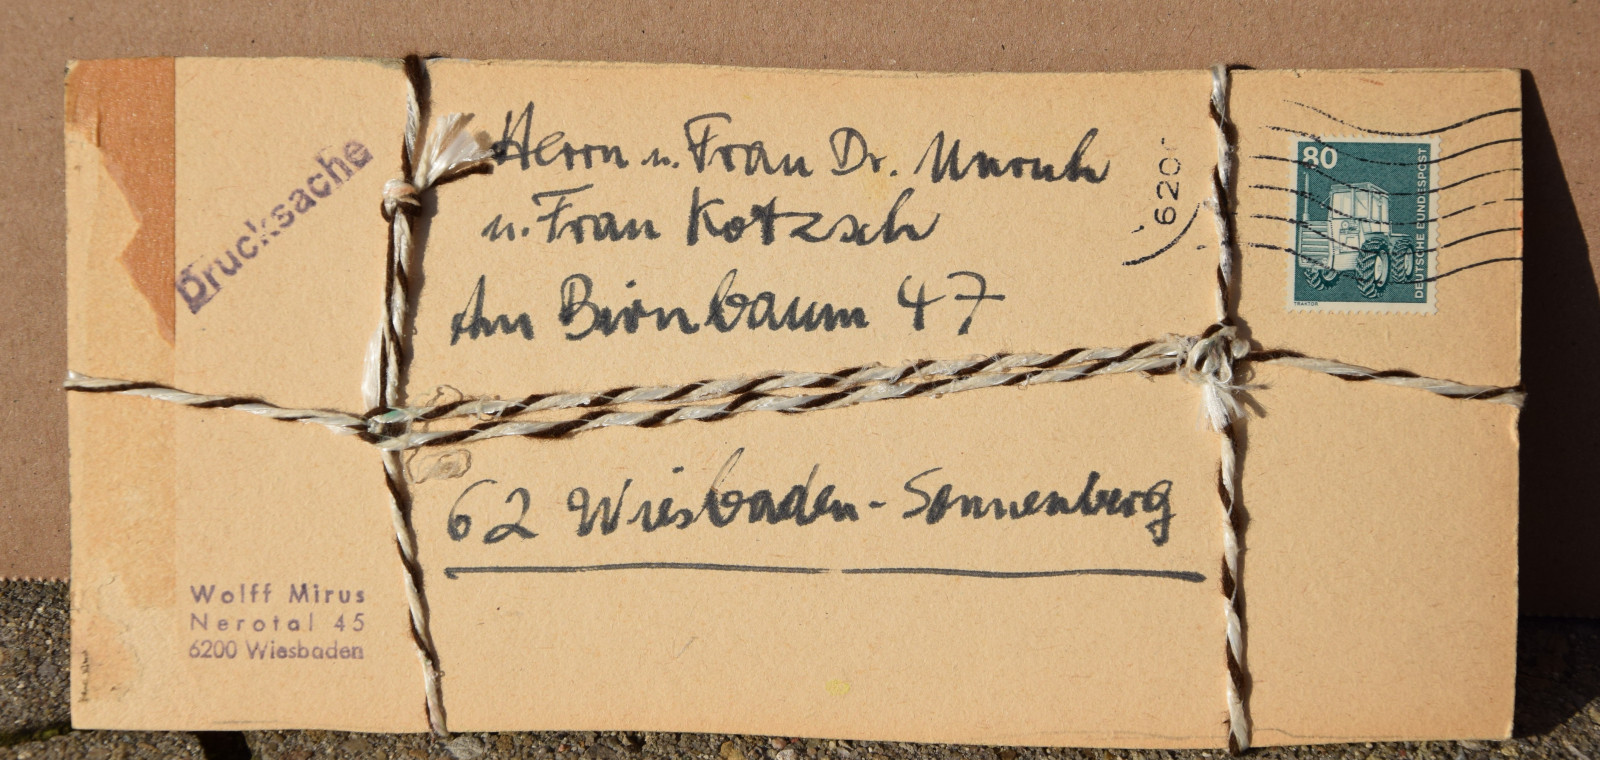 Drucksache
Herrn u. Frau Dr. Unruh
u. Frau Kotzsch
Am Birnbaum 47
62 Wiesbaden-Sonnenberg
Wolff Mirus
Nerotal 45
6200 Wiesbaden
620
80
DEUTSCHE BUNDESPOST
TRAKTOR